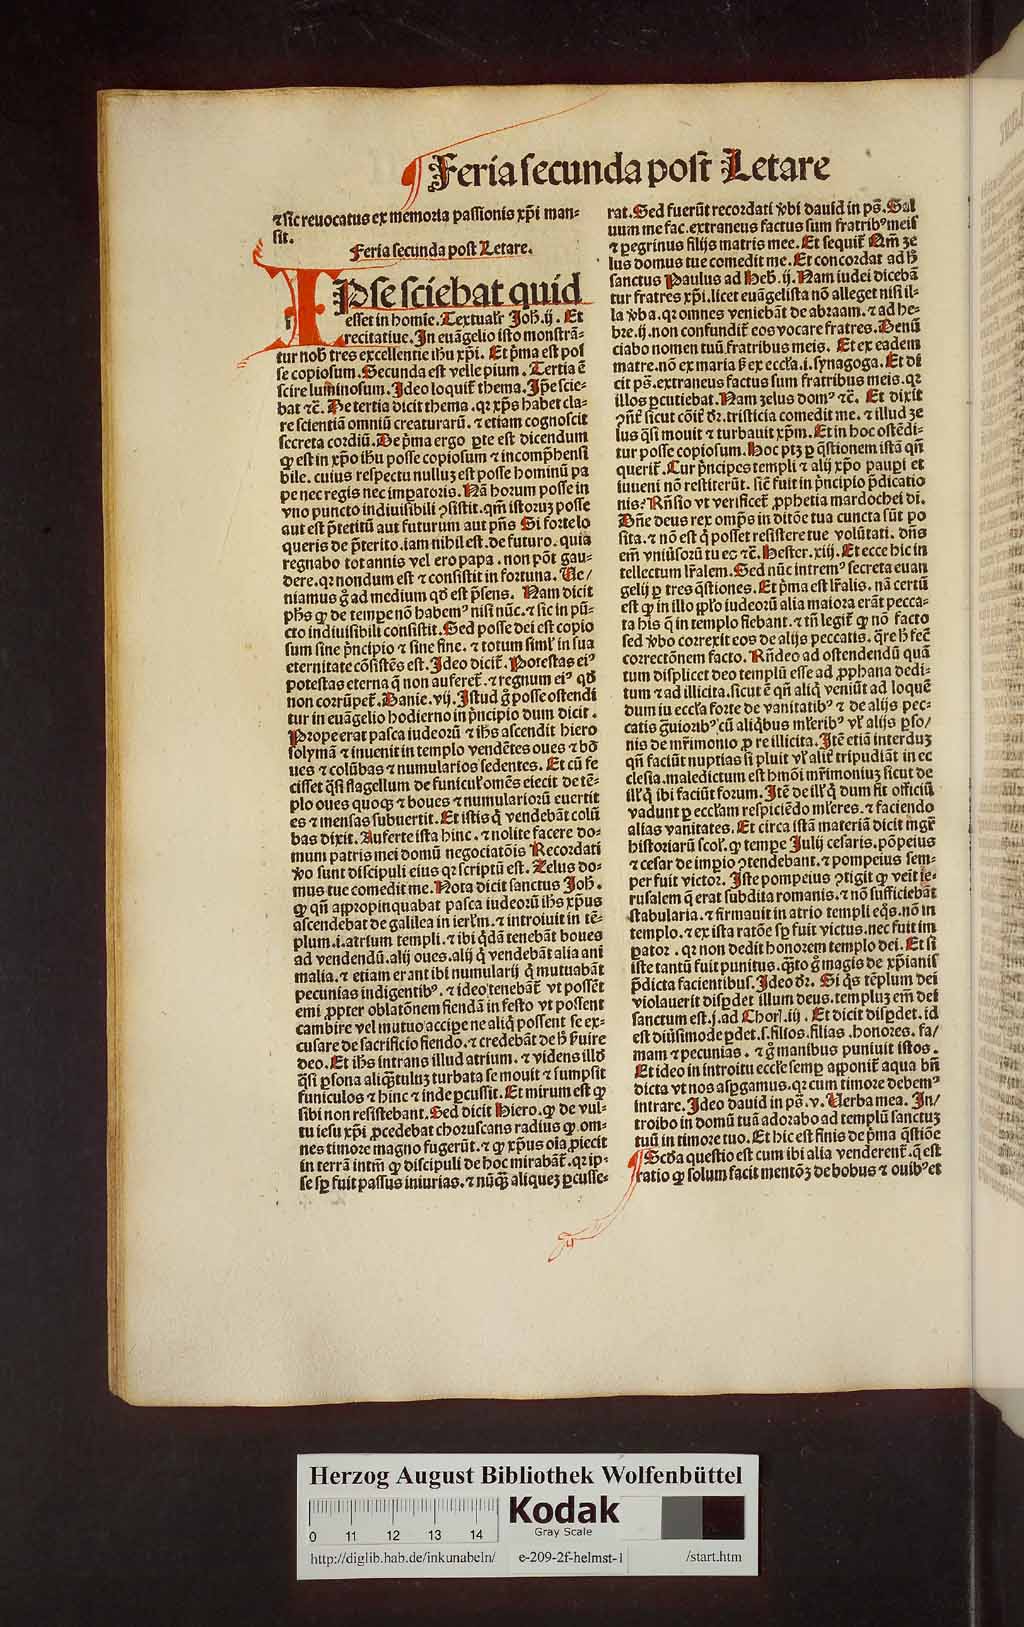 Feria secunda post Letare
⁊ sic reuocatus ex memoria passionis xp̄i man-
sit.
Feria secunda post Letare.
IPse sciebat quid
esset in homīe. Textualr̄ Joh̄. ij. Et
recitatiue. In euāgelio isto monstrā-
tur nob̄ tres excellentie ih̄u xp̄i. Et p̄ma est pos
se copiosum. Secunda est velle pium. Tertia ē
scire luminosum. Ideo loquit̄ thema. Ip̄e scie-
bat ⁊c̄. De tertia dicit thema. qꝛ xp̄s habet cla-
re scientiā omniū creaturarū. ⁊ etiam cognoscit
secreta cordiū. De p̄ma ergo ꝑte est dicendum
ꝙ est in xp̄o ih̄u posse copiosum ⁊ incomp̄hensi
bile. cuius respectu nulluꝫ est posse hominū pa
pe nec regis nec imꝑatoris. Nā horum posse in
vno puncto indiuisibili ꝯsistit. qm̄ istoruꝫ posse
aut est p̄teritū aut futurum aut p̄ns Si forte lo
queris de p̄terito. iam nihil est. de futuro. quia
regnabo tot annis vel ero papa. non pōt gau-
dere. qꝛ nondum est ⁊ consistit in fortuna. Ue/
niamus g̊ ad medium qd̄ est p̄sens. Nam dicit
ph̄s ꝙ de tempe nō habem⁹ nisi nūc. ⁊ sic in pū-
cto indiuisibili consistit. Sed posse dei est copio
sum sine p̄ncipio ⁊ sine fine. ⁊ totum siml̄ in sua
eternitate cōsistēs est. Ideo dicit̄. Potestas ei⁹
potestas eterna q̄ non auferet̄. ⁊ regnum ei⁹ qd̄
non corrūpet̄. Danie. vij. Istud g̊ posse ostendi
tur in euāgelio hodierno in p̄ncipio dum dicit.
Prope erat pasca iudeorū ⁊ ih̄s ascendit hiero
solymā ⁊ inuenit in templo vendētes oues ⁊ bo
ues ⁊ colūbas ⁊ numularios sedentes. Et cū fe
cisset q̄si flagellum de funiculꝭ omēs eiecit de tē-
plo oues quoqꝫ ⁊ boues ⁊ numulariorū euertit
es ⁊ mensas subuertit. Et istis q̄ vendebāt colū
bas dixit. Auferte ista hinc. ⁊ nolite facere do-
mum patris mei domū negociatōis Recordati
ꝟo sunt discipuli eius qꝛ scriptū est. Zelus do-
mus tue comedit me. Nota dicit sanctus Joh̄.
ꝙ qn̄ appropinquabat pasca iudeorū ih̄s xp̄us
ascendebat de galilea in ierl̄m. ⁊ introiuit in tē-
plum. i. atrium templi. ⁊ ibi q̄dā tenebāt boues
ad vendendū. alij oues. alij q̄ vendebāt alia ani
malia. ⁊ etiam erant ibi numularij q̄ mutuabāt
pecunias indigentib⁹. ⁊ ideo tenebāt̄ vt possēt
emi ꝓpter oblatōnem fiendā in festo vt possent
cambire vel mutuo accipe ne aliq̄ possent se ex-
cusare de sacrificio fiendo. ⁊ credebāt de h̄ ẜuire
deo. Et ih̄s intrans illud atrium. ⁊ videns illd̄
q̄si ꝑsona aliqꝫtuluꝫ turbata se mouit ⁊ sumpsit
funiculos ⁊ hinc ⁊ inde ꝑcussit. Et mirum est ꝙ
sibi non resistebant. Sed dicit Hiero. ꝙ de vul-
tu iesu xp̄i ꝓcedebat choruscans radius ꝙ om-
nes timore magno fugerūt. ⁊ ꝙ xp̄us oīa ꝓiecit
in terrā intm̄ ꝙ discipuli de hoc mirabāt̄. qꝛ ip-
se sꝑ fuit passus iniurias. ⁊ nūqꝫ̄ aliqueꝫ ꝑcusse-
rat. Sed fuerūt recordati ꝟbi dauid in ps̄. Sal
uum me fac. extraneus factus sum fratrib⁹ meis
⁊ ꝑegrinus filijs matris mee. Et sequit̄ Qm̄ ze
lus domus tue comedit me. Et concordat ad h̄
sanctus Paulus ad Heb̄. ij. Nam iudei dicebā
tur fratres xp̄i. licet euāgelista nō alleget nisi il-
la ꝟba. qꝛ omnes veniebāt de abraam. ⁊ ad he-
bre. ij. non confundit̄ eos vocare fratres. Denū
ciabo nomen tuū fratribus meis. Et ex eadem
matre. nō ex maria sꝫ ex eccl̄a. i. synagoga. Et di
cit ps̄. extraneus factus sum fratribus meis. qꝛ
illos ꝑcutiebat. Nam zelus dom⁹ ⁊c̄. Et dixit
ꝯn̄t̄ sicut cōit̄ dr̄. tristicia comedit me. ⁊ illud ze
lus q̄si mouit ⁊ turbauit xp̄m. Et in hoc ostēdi-
tur posse copiosum. Hoc ptꝫ ꝑ q̄stionem istā qn̄
querit̄. Cur p̄ncipes templi ⁊ alij xp̄o paupi et
iuueni nō restiterūt. sic̄ fuit in p̄ncipio p̄dicatio
nis? Rn̄sio vt verificet̄ ꝓphetia mardochei di.
Dn̄e deus rex omp̄s in ditōe tua cuncta sūt po
sita. ⁊ nō est q̄ posset resistere tue volūtati. dn̄s
em̄ vniūsorū tu es ⁊c̄. Hester. xiij. Et ecce hic in
tellectum lr̄alem. Sed nūc intrem⁹ secreta euan
gelij ꝑ tres q̄stiones. Et p̄ma est lr̄alis. nā certū
est ꝙ in illo pplo iudeorū alia maiora erāt pecca-
ta his q̄ in templo fiebant. ⁊ tn̄ legit̄ ꝙ nō facto
sed ꝟbo correxit eos de alijs peccatis. q̄re h̄ fec̄
correctōnem facto. Rn̄deo ad ostendendū quā
tum displicet deo templū esse ad ꝓphana dedi-
tum ⁊ ad illicita. sicut ē qn̄ aliq̄ veniūt ad loquē
dum iu eccl̄a forte de vanitatib⁹ ⁊ de alijs pec-
catis g̊uiorib⁹ cū aliqbus ml̄erib⁹ vl̄ alijs ꝑso/
nis de mr̄imonio ꝓ re illicita. Itē etiā interduꝫ
qn̄ faciūt nuptias si pluit vl̄ alit̄ tripudiāt in ec
clesia. maledictum est hmōi mr̄imoniuꝫ sicut de
ill̄ q̄ ibi faciūt forum. Itē de ill̄ q̄ dum fit officiū
vadunt ꝑ eccl̄am respiciēdo ml̄ieres. ⁊ faciendo
alias vanitates. Et circa istā materiā dicit mgr̄
historiarū scol̄. ꝙ tempe Julij cesaris. pōpeius
⁊ cesar de imꝑio ꝯtendebant. ⁊ pompeius sem-
per fuit victor. Iste pompeius ꝯtigit ꝙ veīt ie-
rusalem q̄ erat subdita romanis. ⁊ nō sufficiebāt
stabularia. ⁊ firmauit in atrio templi eq̄s. nō in
templo. ⁊ ex ista ratōe sꝑ fuit victus. nec fuit im
ꝑator. qꝛ non dedit honorem templo dei. Et si
iste tantū fuit punitus. qꝫto g̊ magis de xp̄ianis
p̄dicta facientibus. Ideo dr̄. Si q̄s tēplum dei
violauerit disꝑdet illum deus. templuꝫ em̄ dei
sanctum est. j. ad Chorl. iij. Et dicit disꝑdet. id
est diūsimode ꝑdet. s. filios. filias. honores. fa/
mam ⁊ pecunias. ⁊ g̊ manibus puniuit istos.
Et ideo in introitu eccl̄e semꝑ apponit̄ aqua bn̄
dicta vt nos aspgamus. qꝛ cum timore debem⁹
intrare. Ideo dauid in ps̄. v. Uerba mea. In/
troibo in domū tuā adorabo ad templū sanctuꝫ
tuū in timore tuo. Et hic est finis de p̄ma q̄stiōe
Scd̄a questio est cum ibi alia venderent̄. q̄ est
ratio ꝙ solum facit mentōꝫ de bobus ⁊ ouib⁹ et
Herzog August Bibliothek Wolfenbüttel
Kodak
Gray Scale
0 11 12 13 14
http://diglib.hab.de/inkunabeln/ e-209-2f-helmst-1 /start.htm